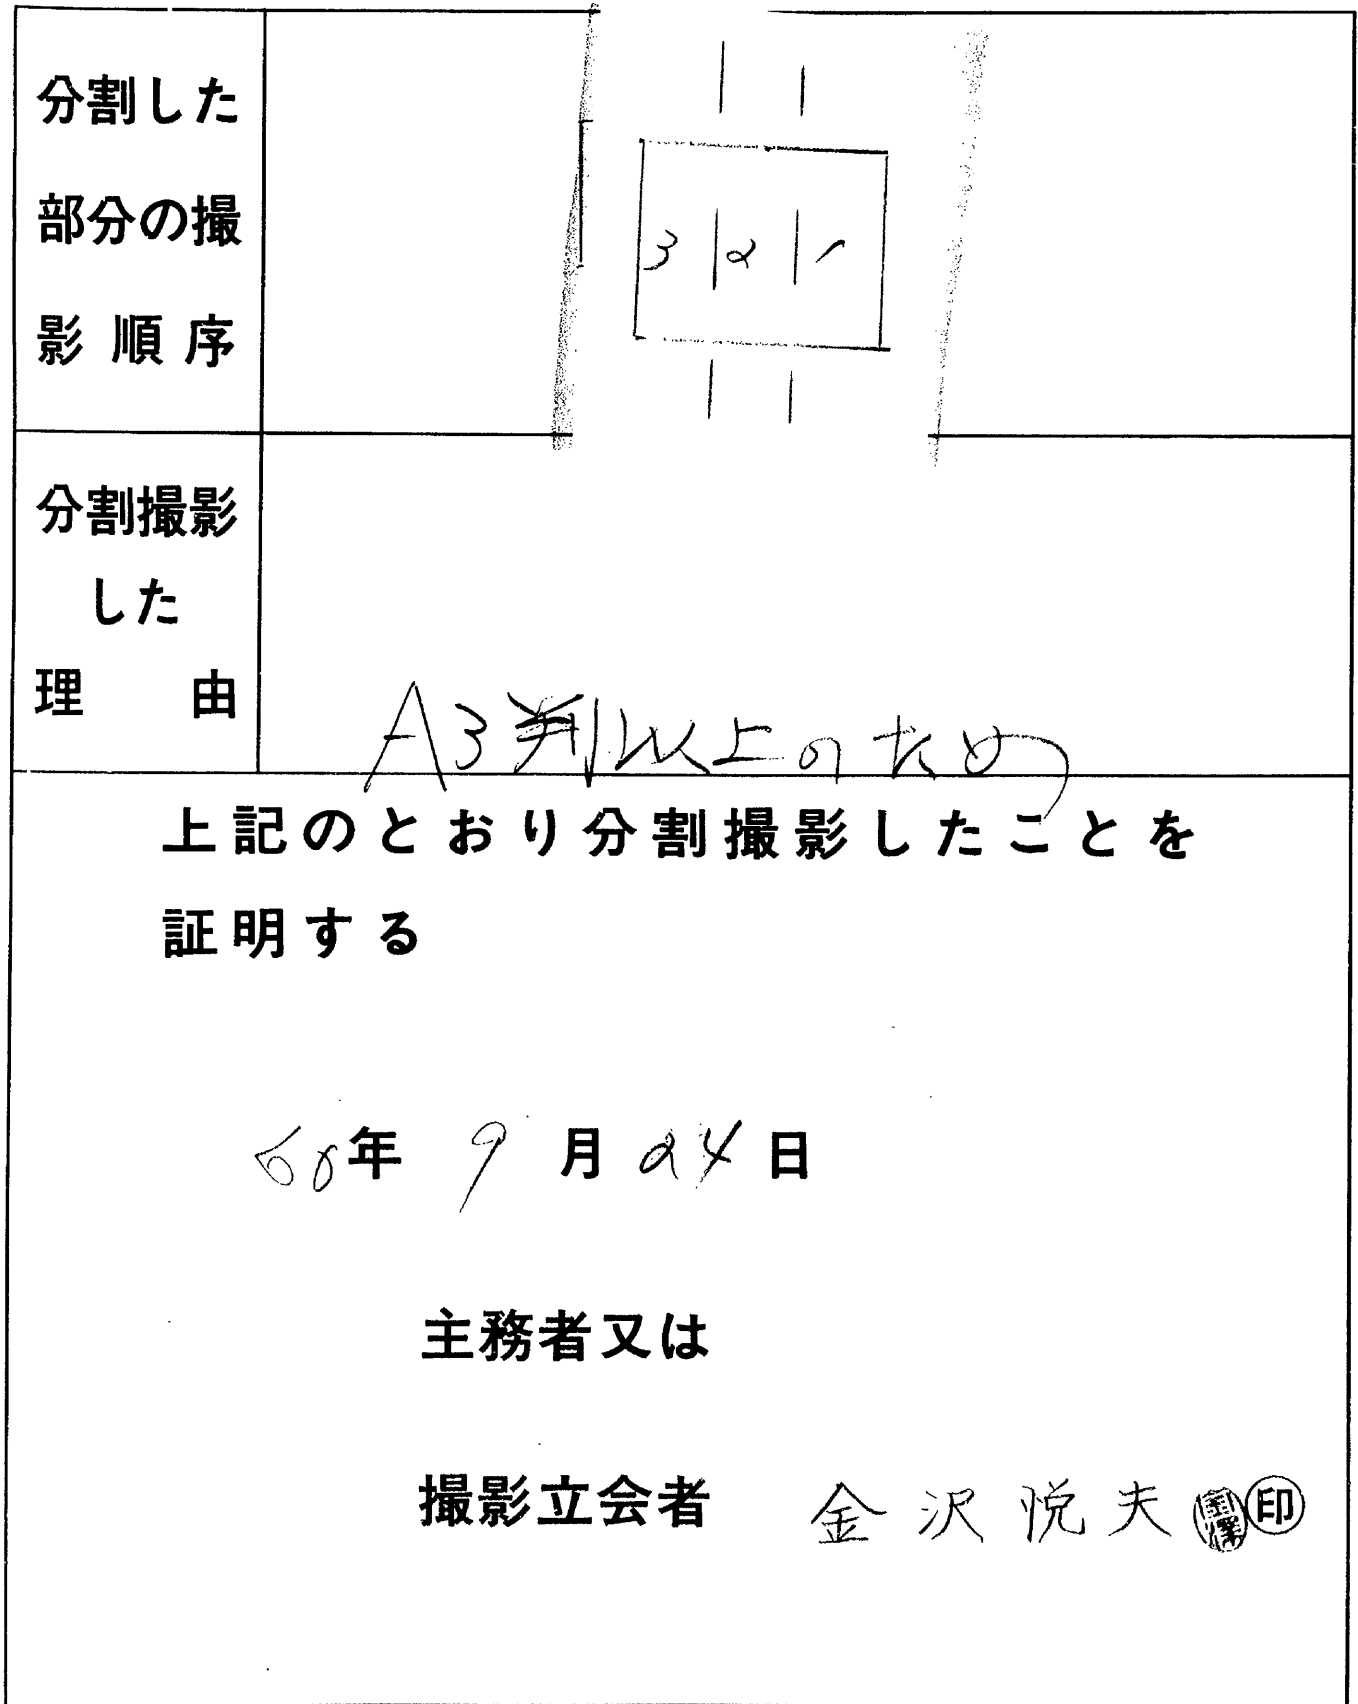 分割した
部分の撮
影順序
3 2 1
分割撮影
した
理由
A3判以上のため
上記のとおり分割撮影したことを
証明する
60年 9月24日
主務者又は
撮影立会者 金沢悦夫 金澤 印